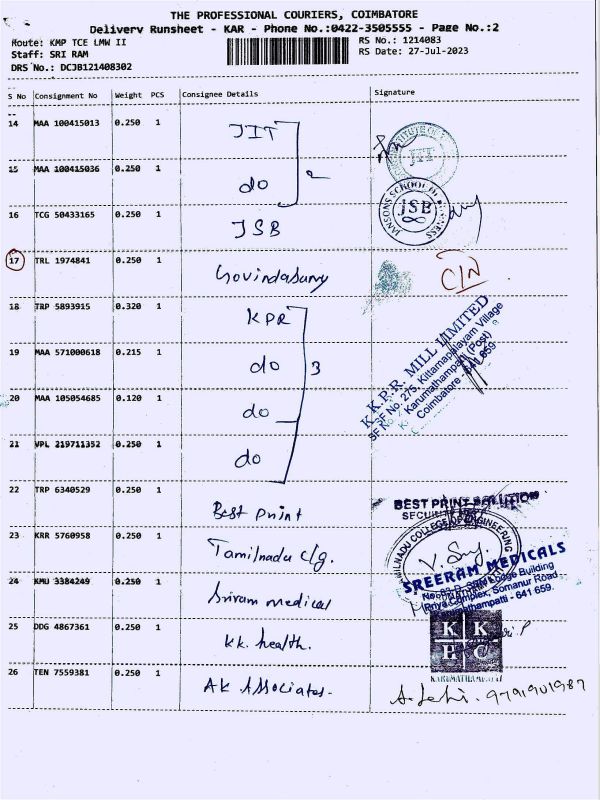 THE PROFESSIONAL COURIERS, COIMBATORE
Delivery Runsheet - KAR - Phone No.:0422-3505555 - Page No.:2
Route: KMP TCE LMW II
RS No.: 1214083
Staff: SRI RAM
RS Date: 27-Jul-2023
DRS No.: DCJB121408302
S No Consignment No Weight PCS Consignee Details Signature
14 MAA 100415013 0.250 1 JIT
15 MAA 100415036 0.250 1 do 2
JIT
16 TCG 50433165 0.250 1 JSB
JANSONS SCHOOL OF BUSINESS
JSB
17 TRL 1974841 0.250 1 Govindasamy
18 TRP 5893915 0.320 1 KPR
19 MAA 571000618 0.215 1 do 3
20 MAA 105054685 0.120 1 do
21 VPL 219711352 0.250 1 do
K.P.R. MILL LIMITED
SF No. 275, Kittampalayam Village
Karumathampatti (Post)
Coimbatore - 641 659
22 TRP 6340529 0.250 1 Best print
BEST PRINT SOLUTION
23 KRR 5760958 0.250 1 Tamilnadu clg.
TAMILNADU COLLEGE OF ENGINEERING
24 KMU 3384249 0.250 1 Sriram medical
SREERAM MEDICALS
Lodge Building
Priya Complex, Somanur Road
Karumathampatti - 641 659.
25 DDG 4867361 0.250 1 kk. health.
K K
H C
26 TEN 7559381 0.250 1 AK Associates.
9791901987